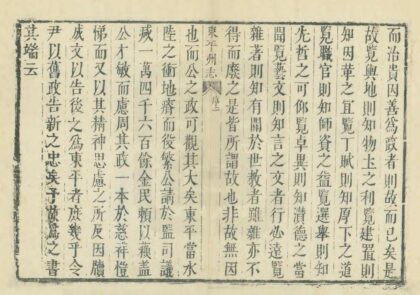 而治貴因善爲政者則故而已矣是
故覽輿地則知物土之利覽建置則
知因革之宜覽丁賦則知厚下之道
覽職官則知師資之益覽選舉則知
先哲之可仰覽卓異則知潛德之當
闡覽藝文則知言之文者行必遠覽
雜著則知有關於世教者雖雜亦不
得而廢之是皆所謂故也非故無因
東平州志
也而公之政可觀其大矣東平當水
陸之衝地瘠而役繁公請於監司議
減一萬四千六百餘金民賴以蘇蓋
公才敏而慮周其政一本於慈祥愷
悌而又以其精神思慮之所及因牘
成文以告後之爲東平者庶幾乎令
尹以舊政告新之忠矣予嘉爲之書
其端云